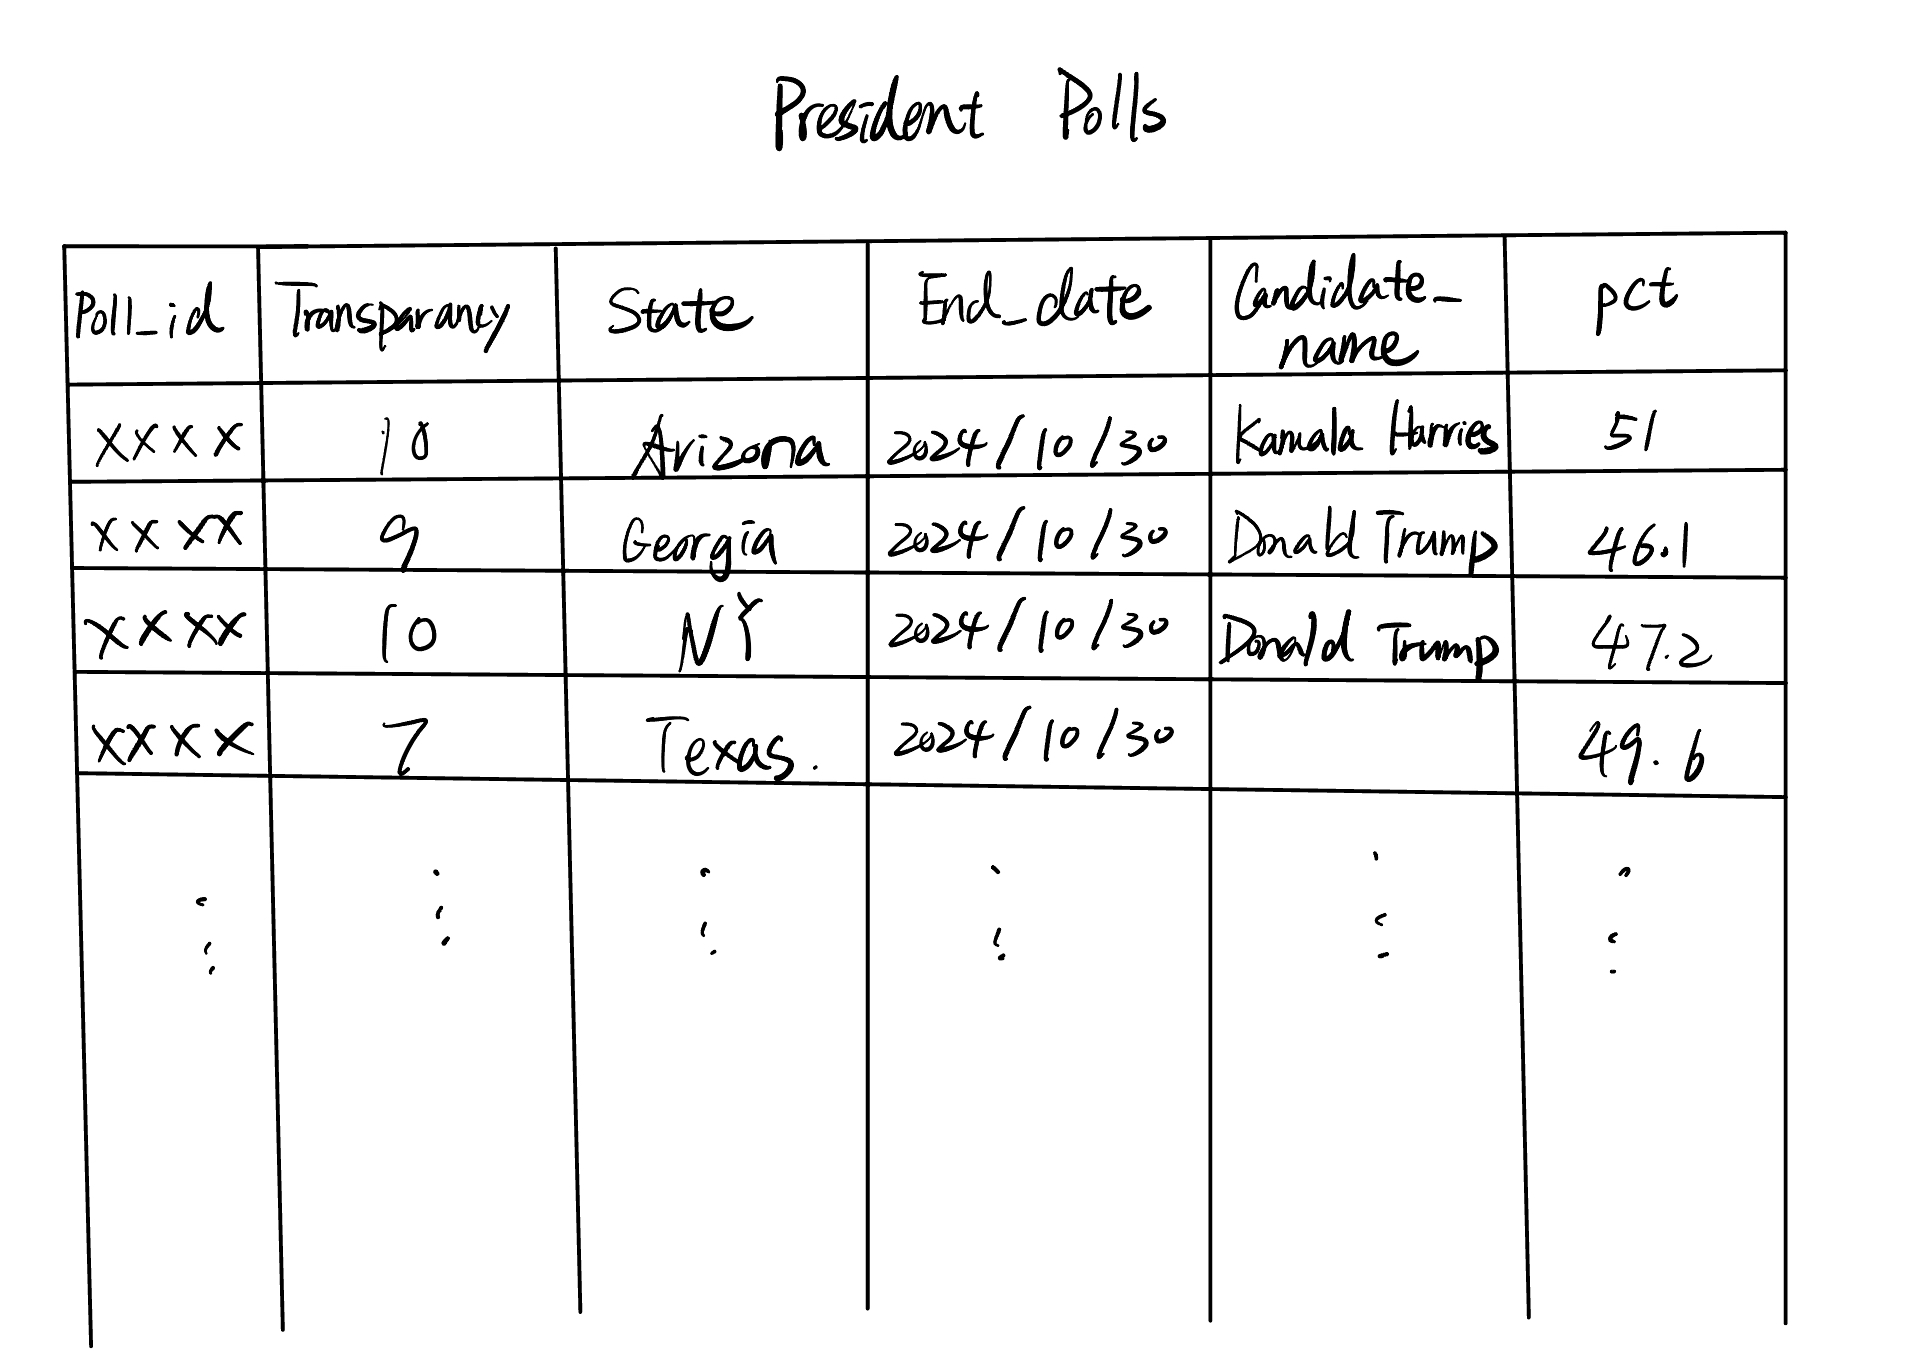 President Polls
Poll_id Transparancy State End_date Candidate_ pct
name
xxxx 10 Arizona 2024/10/30 Kamala Harries 51
xxxx 9 Georgia 2024/10/30 Donald Trump 46.1
xxxx 10 NY 2024/10/30 Donald Trump 47.2
xxxx 7 Texas. 2024/10/30 49.6